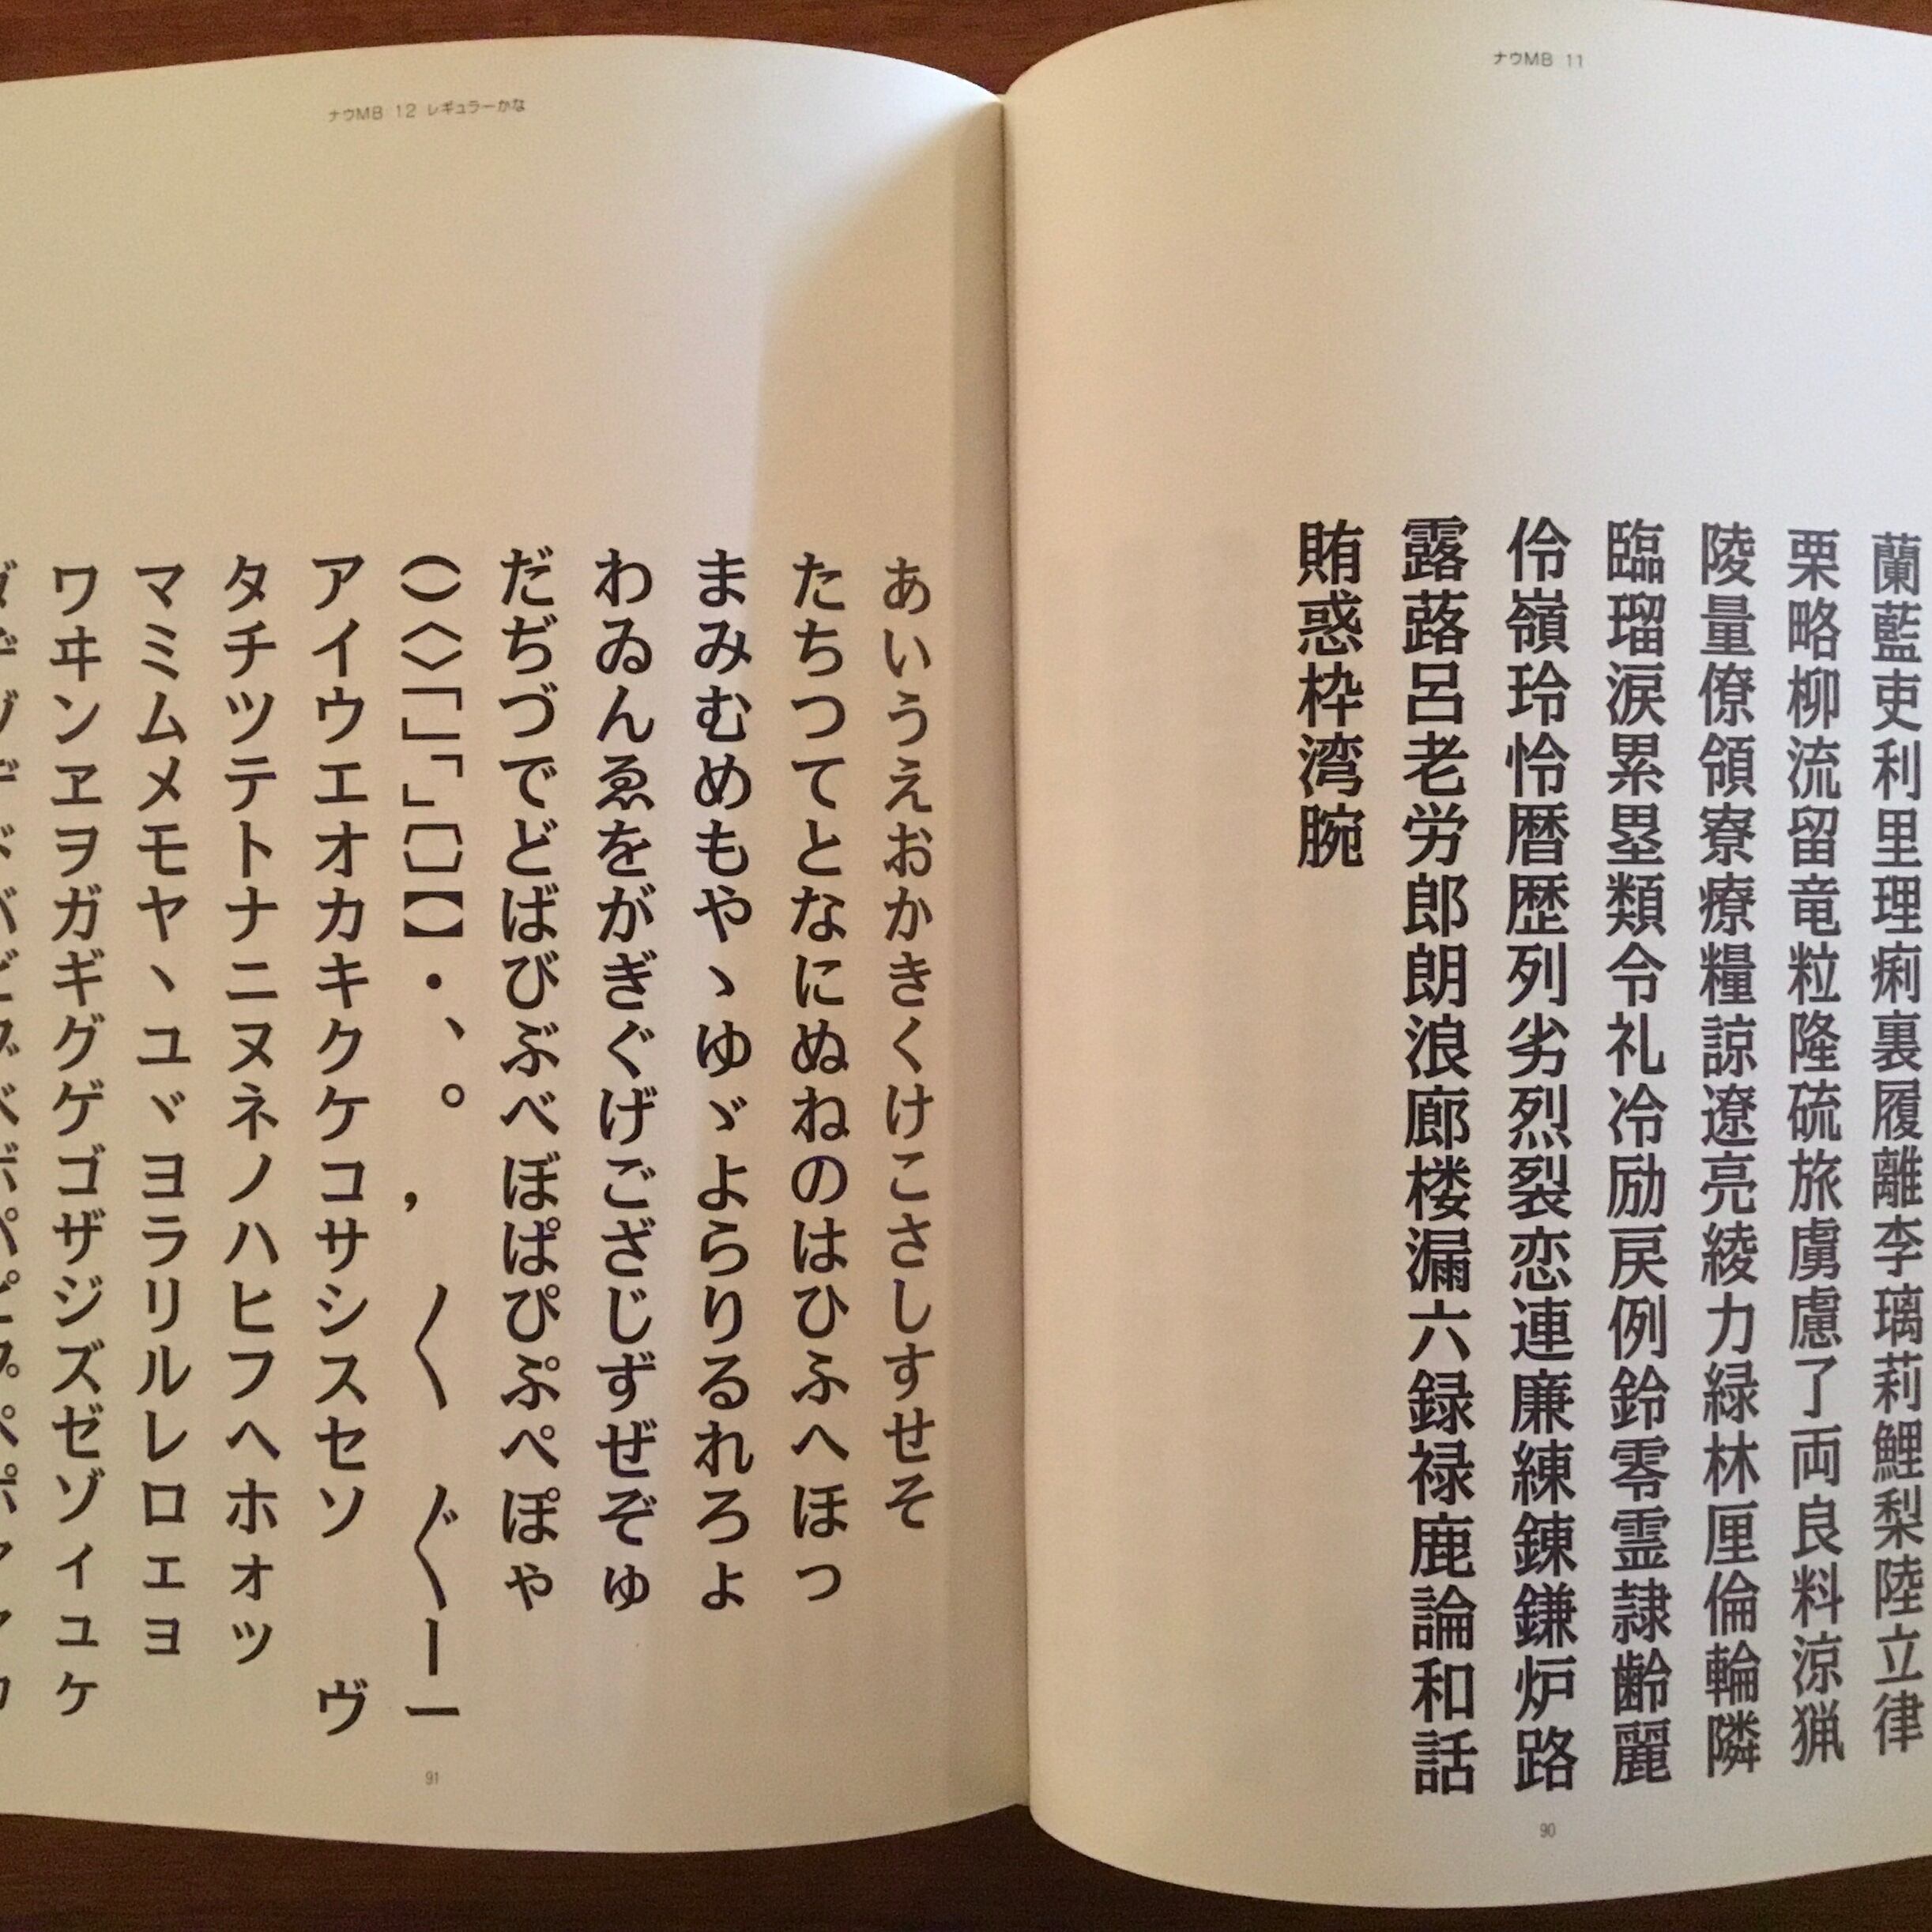 ナウMB 11
蘭藍吏利里理痢裏履離李璃莉鯉梨陸立律
栗略柳流留竜粒隆硫旅虜慮了両良料涼猟
陵量僚領寮療糧諒遼亮綾力緑林厘倫輪隣
臨瑠涙累塁類令礼冷励戻例鈴零霊隷齢麗
伶嶺玲怜暦歴列劣烈裂恋連廉練錬鎌炉路
露蕗呂老労郎朗浪廊楼漏六録禄鹿論和話
賄惑枠湾腕
90
ナウMB 12 レギュラーかな
あいうえおかきくけこさしすせそ
たちつてとなにぬねのはひふへほっ
まみむめもやゝゆゞよらりるれろょ
わゐんゑをがぎぐげござじずぜぞゅ
だぢづでどばびぶべぼぱぴぷぺぽゃ
()〈〉「」「」〔〕【】・、。,〱〲ー—
アイウエオカキクケコサシスセソヴ
タチツテトナニヌネノハヒフヘホォッ
マミムメモヤヽユヾヨラリルレロェョ
ワヰンヱヲガギグゲゴザジズゼゾィュヶ
91